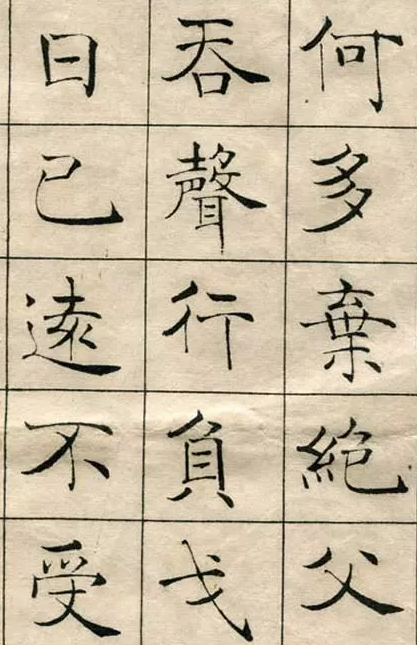 何多棄絕父
吞聲行負戈
日已遠不受